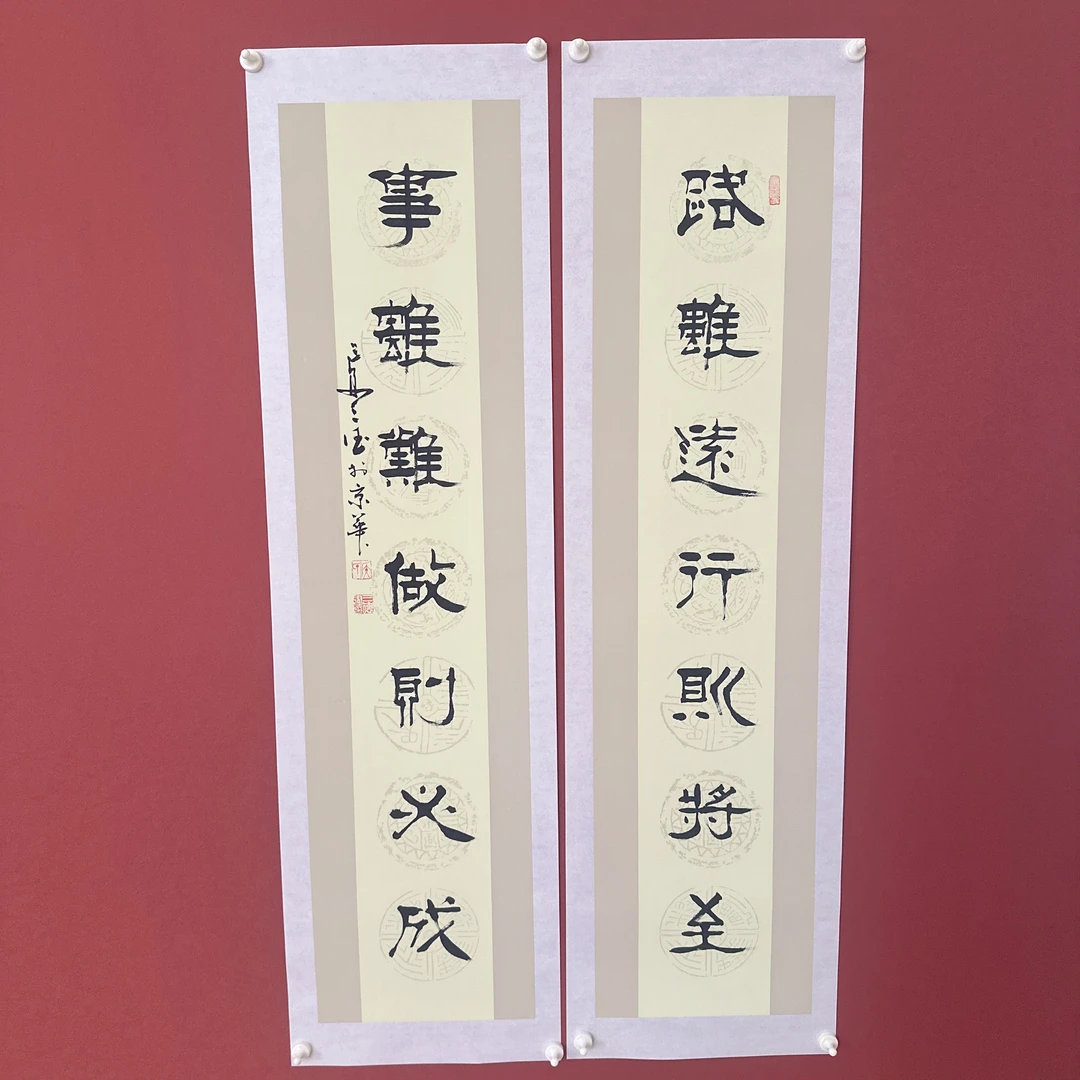 路雖遠行則將至
事雖難做則必成
於京華